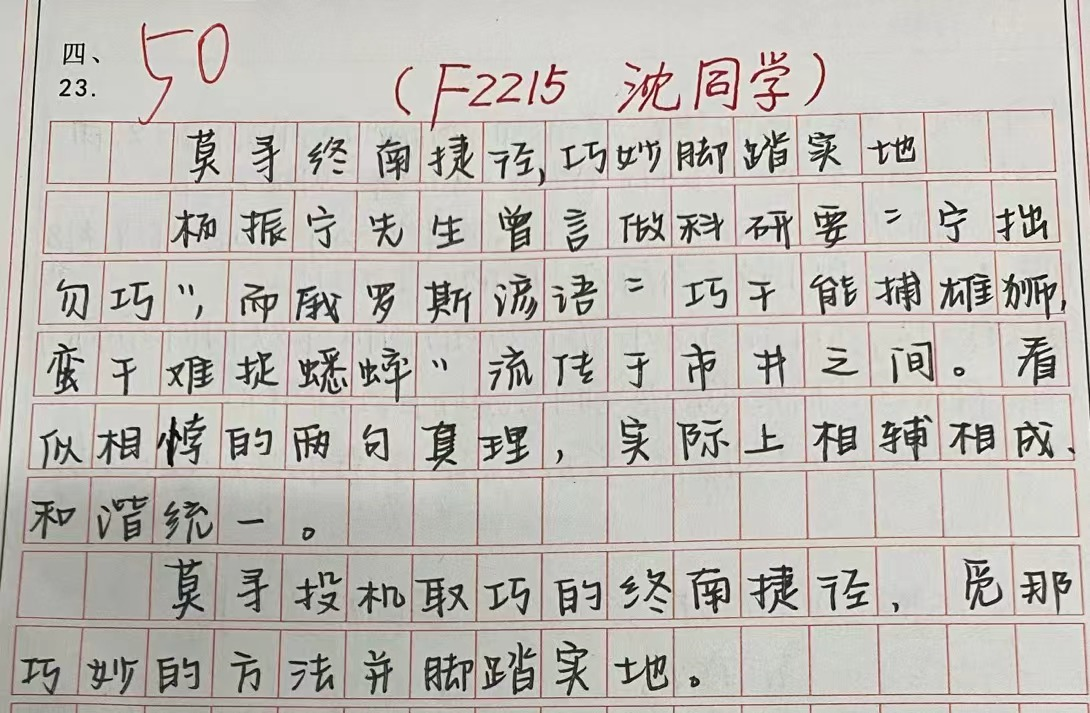 四、
50
23.
(F2215 沈同学)
莫寻终南捷径,巧妙脚踏实地
杨振宁先生曾言做科研要“宁拙
勿巧”,而俄罗斯谚语“巧干能捕雄狮,
蛮干难捉蟋蟀”流传于市井之间。看
似相悖的两句真理,实际上相辅相成、
和谐统一。
莫寻投机取巧的终南捷径,觅那
巧妙的方法并脚踏实地。